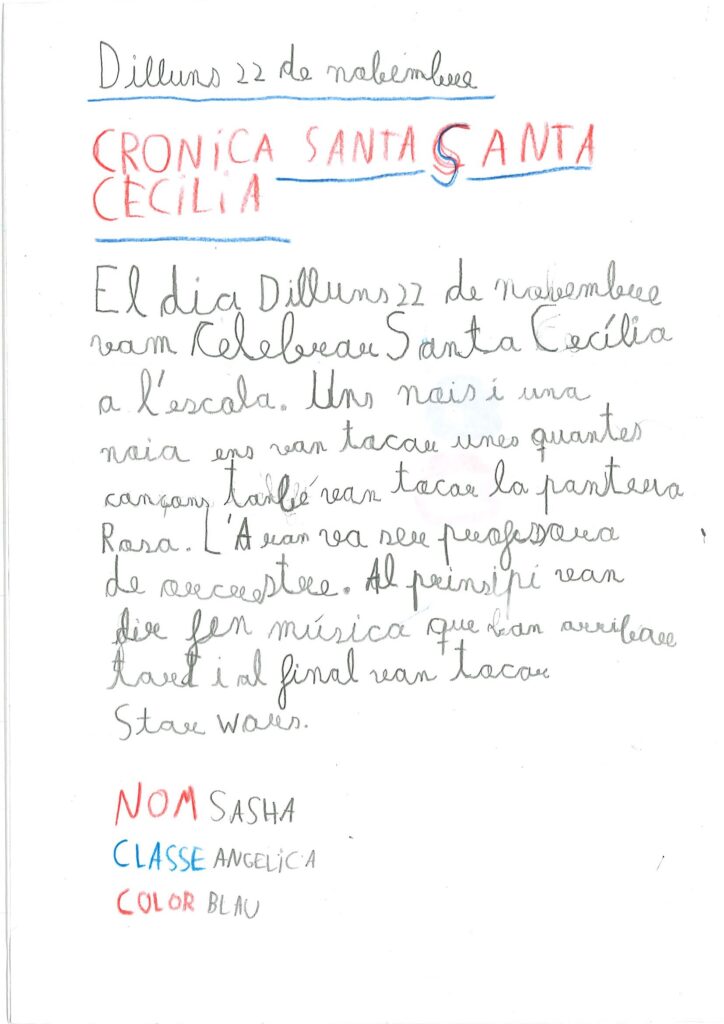 Dilluns 22 de nobembre
CRONICA SANTA SANTA
CECILIA
El dia Dilluns 22 de nobembre
vam Kelebrar Santa Cecília
a l'escola. Uns nois i una
noia ens van tocar unes quantes
cançons també van tocar la pantera
Rosa. L'Aran va ser professora
de orcrestre. Al prinsipi van
dir fen música que ban arribar
tard i al final van tocar
Star Wars.
NOM SASHA
CLASSE ANGELICA
COLOR BLAU